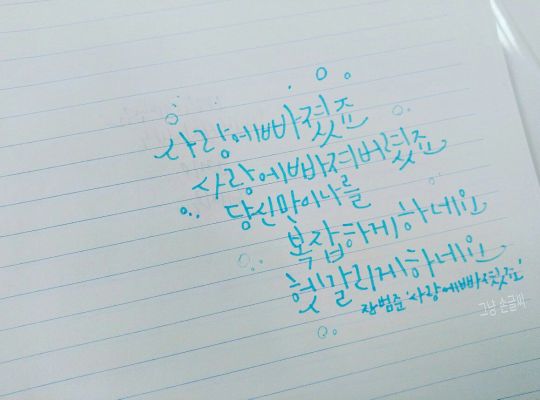 사랑에빠졌죠
사랑에빠져버렸죠
당신만이나를
복잡하게하네요
헷갈리게하네요
장범준 '사랑에빠졌죠'
그냥 손글씨